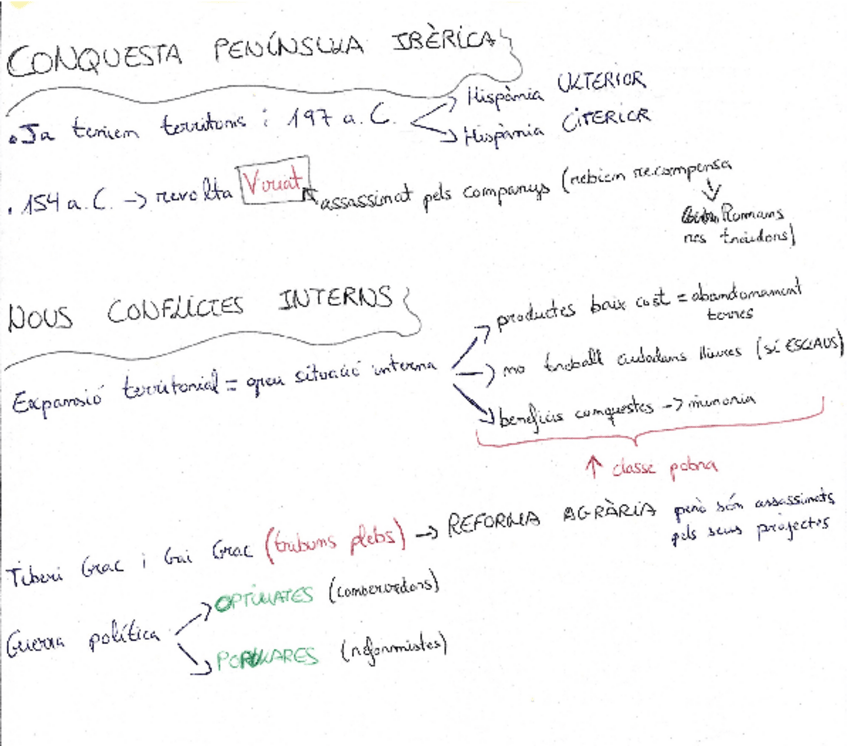 CONQUESTA PENÍNSULA IBÈRICA
• Ja tenien territoris i 197 a. C. → Hispània ULTERIOR
→ Hispània CITERIOR
• 154 a. C. → revolta Viriat ← assassinat pels companys (rebien recompensa
↓
Romans
res traidors)
NOUS CONFLICTES INTERNS
Expansió territorial = greu situació interna
→ productes baix cost = abandonament
terres
→ no treball ciudadans lliures (sí ESCLAUS)
→ beneficis conquestes → minoria
↑ classe pobra
Tiberi Grac i Gai Grac (tribuns plebs) → REFORMA AGRÀRIA però són assassinats
pels seus projectes
Guerra política → OPTIMATES (conservadors)
→ POPULARES (reformistes)